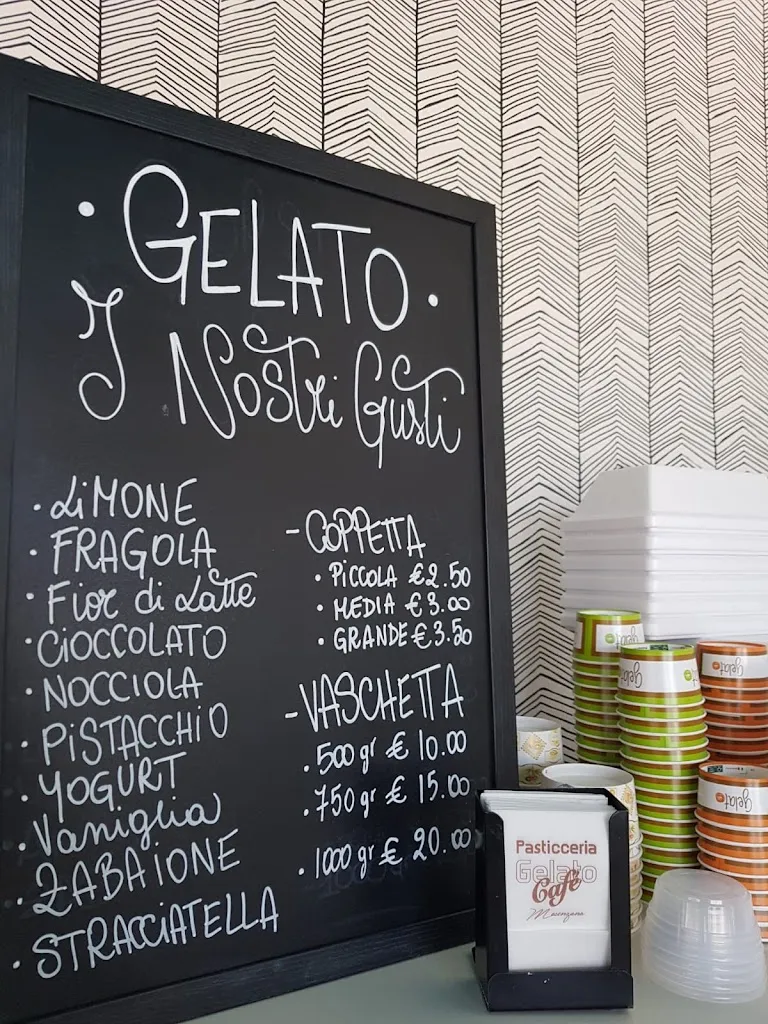 • GELATO •
I Nostri Gusti
• LiMONE
• FRAGOLA
• Fior di Latte
• CIOCCOLATO
• NOCCIOLA
• PiSTACCHIO
• YOGURT
• Vaniglia
• ZABAIONE
• STRACCIATELLA
- COPPETTA
• PICCOLA € 2.50
• MEDIA € 3.00
• GRANDE € 3.50
- VASCHETTA
• 500 gr € 10.00
• 750 gr € 15.00
• 1000 gr € 20.00
Pasticceria
Gelato
Cafè
gelat
gelat
gelat